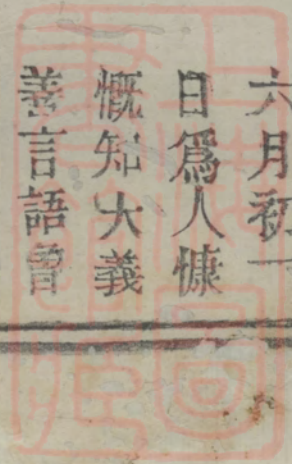 六月初一
日爲人慷
慨知大義
善言語曾